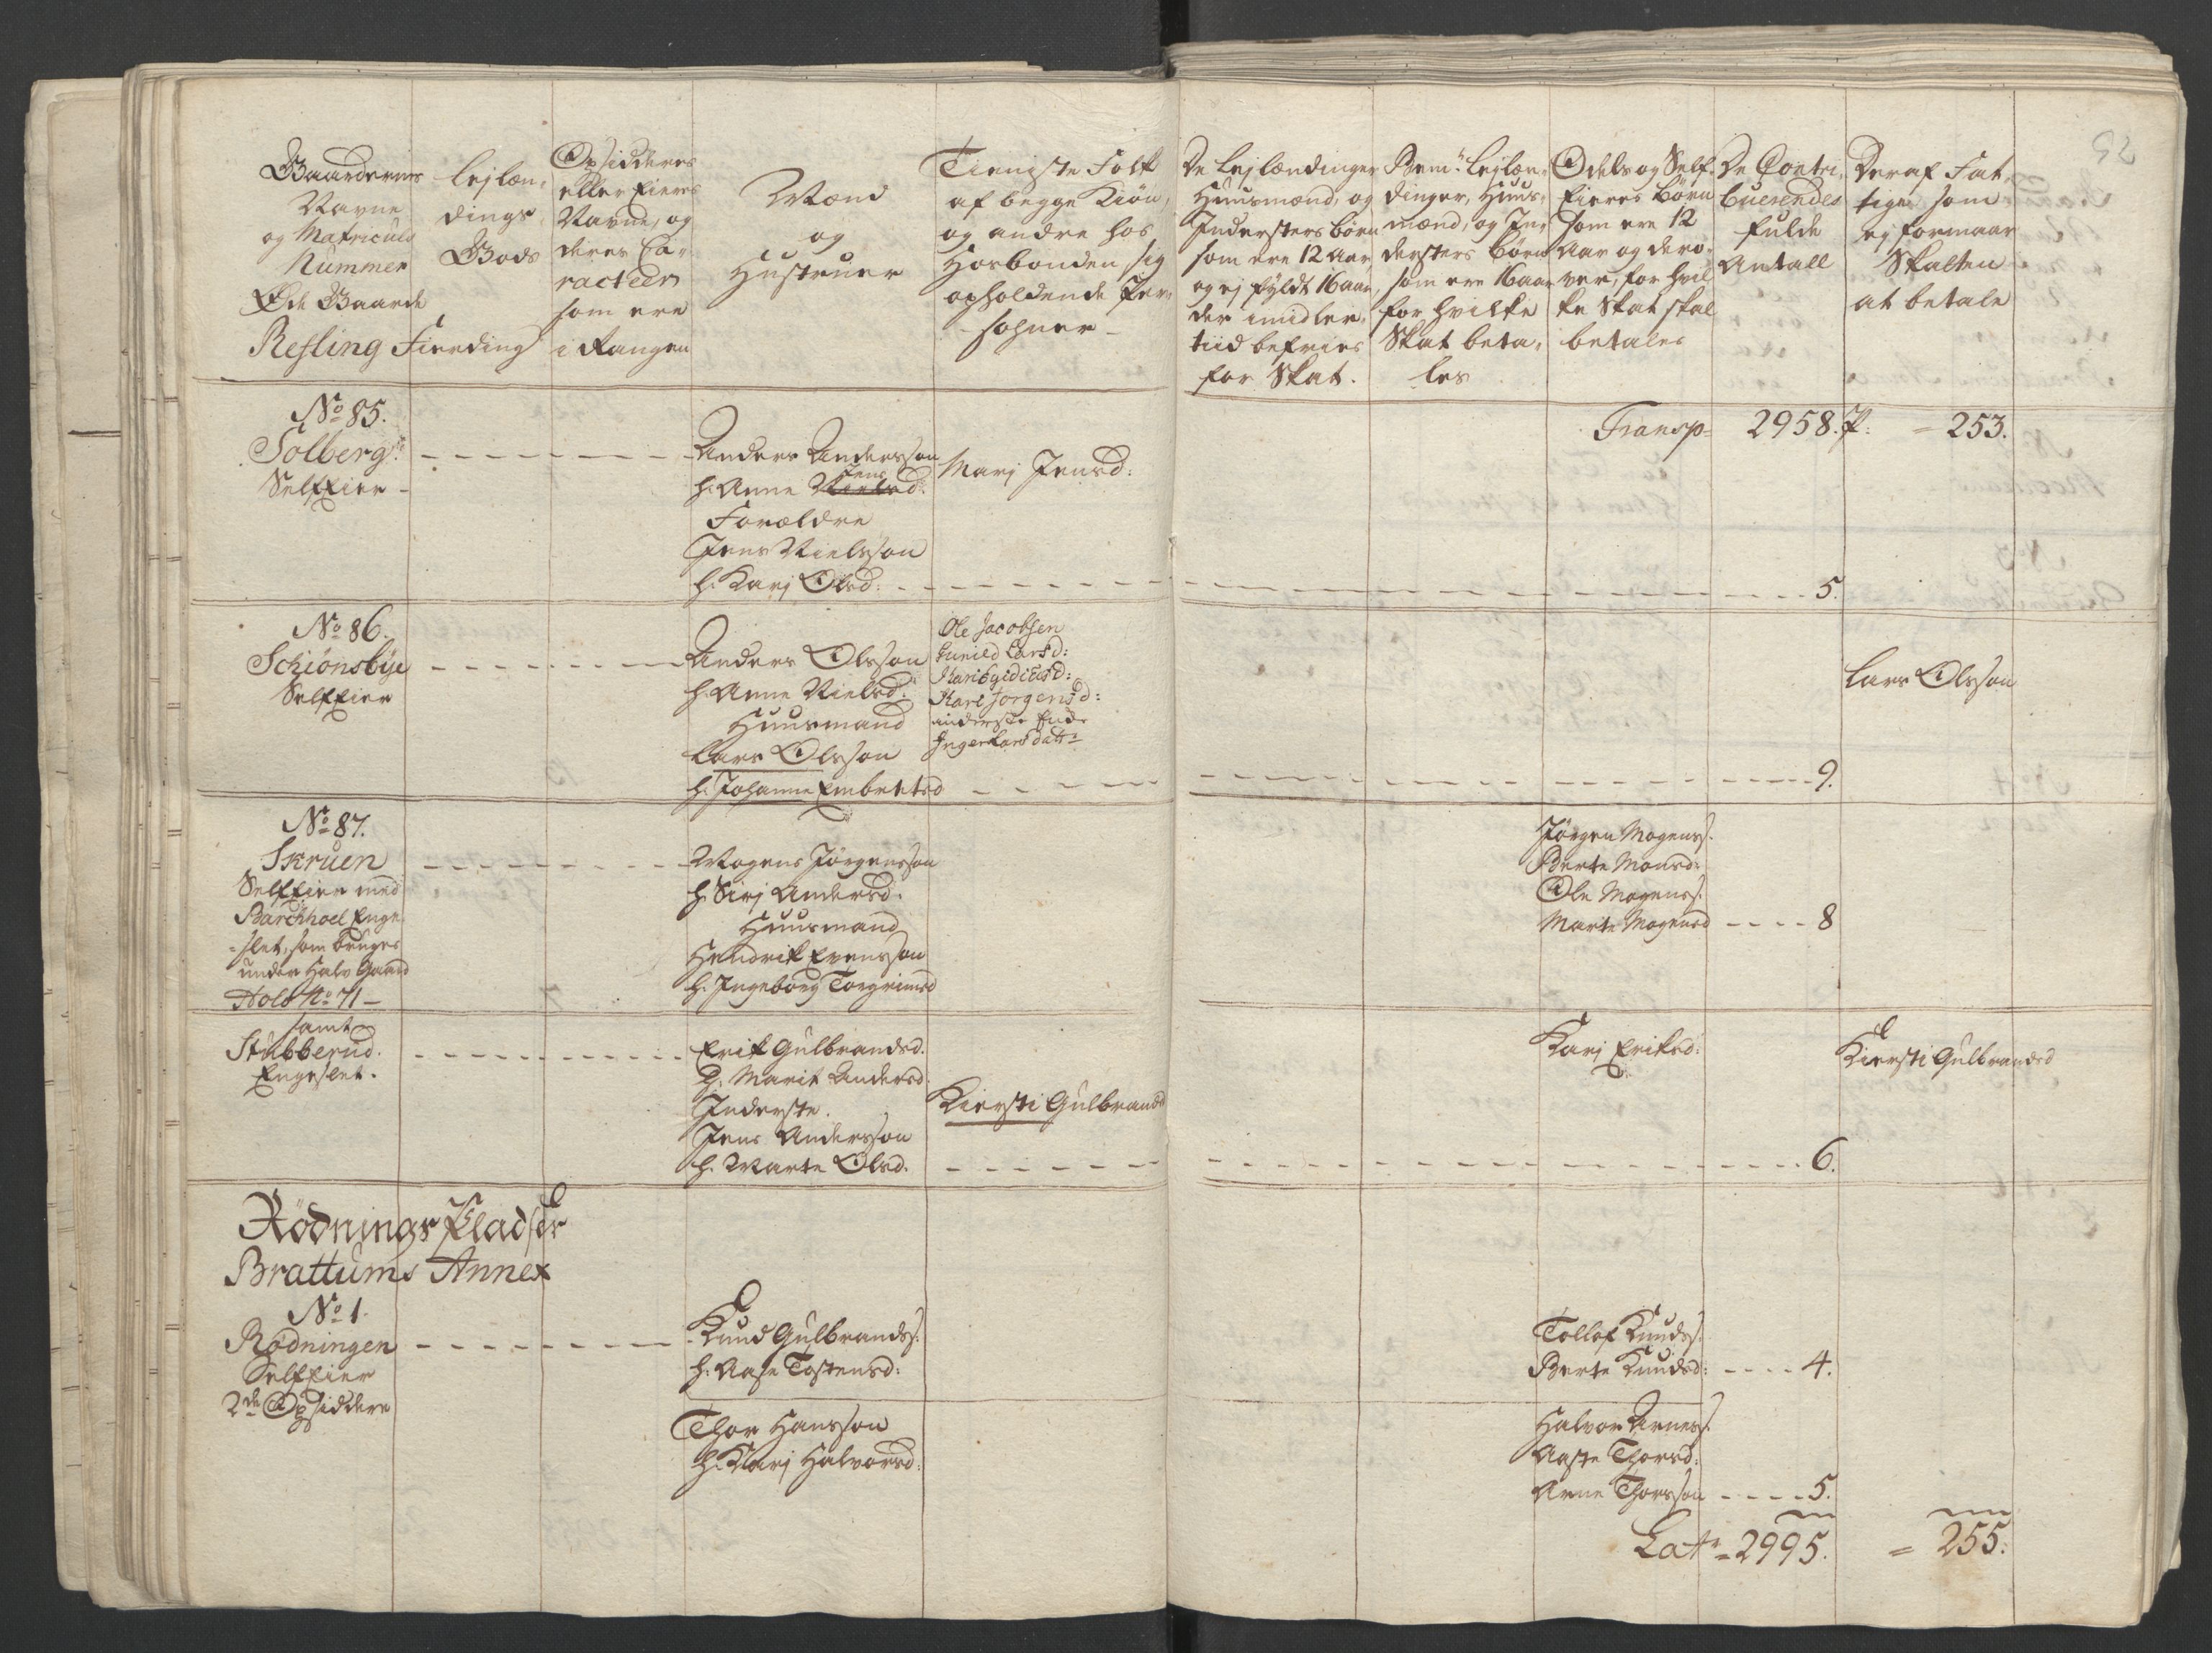 Gaardernes
Navne
og Matriculs
Nummer
Øde Gaarde
Resling Fierding
Lejlæn-
dings
Gods
Opsiddernes
eller Eiernes
Navne, og
deres Ca-
racteer
som ere
i Rangen
Mænd
og
Hustruer
Tieniste Folk
af begge Kiøn,
og andre hos
Hosbonden sig
opholdende Per-
sohner
De Lejlændinger
Huusmænd, og
Indersters børn
som ere 12 Aar
og ej fyldt 16 aar,
der imidler-
tiid befries
for Skat.
Bem.te Lejlæn-
dinger, Huus-
mænd, og In-
dersters børn
som ere 16 aar
for hvilke
Skat beta-
les
Odels og Self-
Eieres børn
som ere 12
Aar og dero-
ver, for hvil
ke Skat skal
betales
De Contri-
buerendes
fulde
Antall
Deraf Fat-
tige som
ej formaar
Skatten
at betale
Transp= 2958. P: = 253.
No 85.
Solberg
SelfEier
Anders Andersson
h. Anne Nielsd: Jens
Forældre
Jens Nielsson
h. Karj Olsd:
Marj Jensd:
5.
No 86.
Schiönsbye
SelfEier
Anders Olsson
h. Anne Nielsd:
Huusmand
Lars Olsson
h. Johanne Embretsd
Ole Jacobsen
Gunild Larsd:
Kari Egidiusd:
Kare Jorgensd:
inderste Enke
Inger Larsdatr
Lars Olsson
9.
No 87.
Skruen
SelfEier med
Barchhoel Enge
slet, som bruges
under Halv Gaard
Hols No 71
Mogens Jörgensson
h. Sirj Andersd:
Huusmand
Hendrik Evensson
h. Ingeborg Torgrimsd
Jörgen Mogenss.
Berte Monsd:
Ole Mogenss.
Marte Mogensd 8
samt
Stubberud.
Engeslet.
Erik Gulbrandsd.
h. Marit Andersd:
Inderste.
Jens Andersson
h. Marte Olsd.
Kiersti Gulbrandsd
Karj Eriksd:
Kiersti Gulbrandsd
6.
Rödnings Pladser
Brattums Annex
No 1.
Rødningen
SelfEier
2de Opsiddere
Knud Gulbrandss.
h. Aase Tostensd:
Tollef Knudss.
Berte Knudsd: 4.
Thor Hansson
h. Marj Halvorsd:
Halvor Arness.
Aaste Thorsd:
Arne Thorsson 5.
Latr = 2995. = 255.